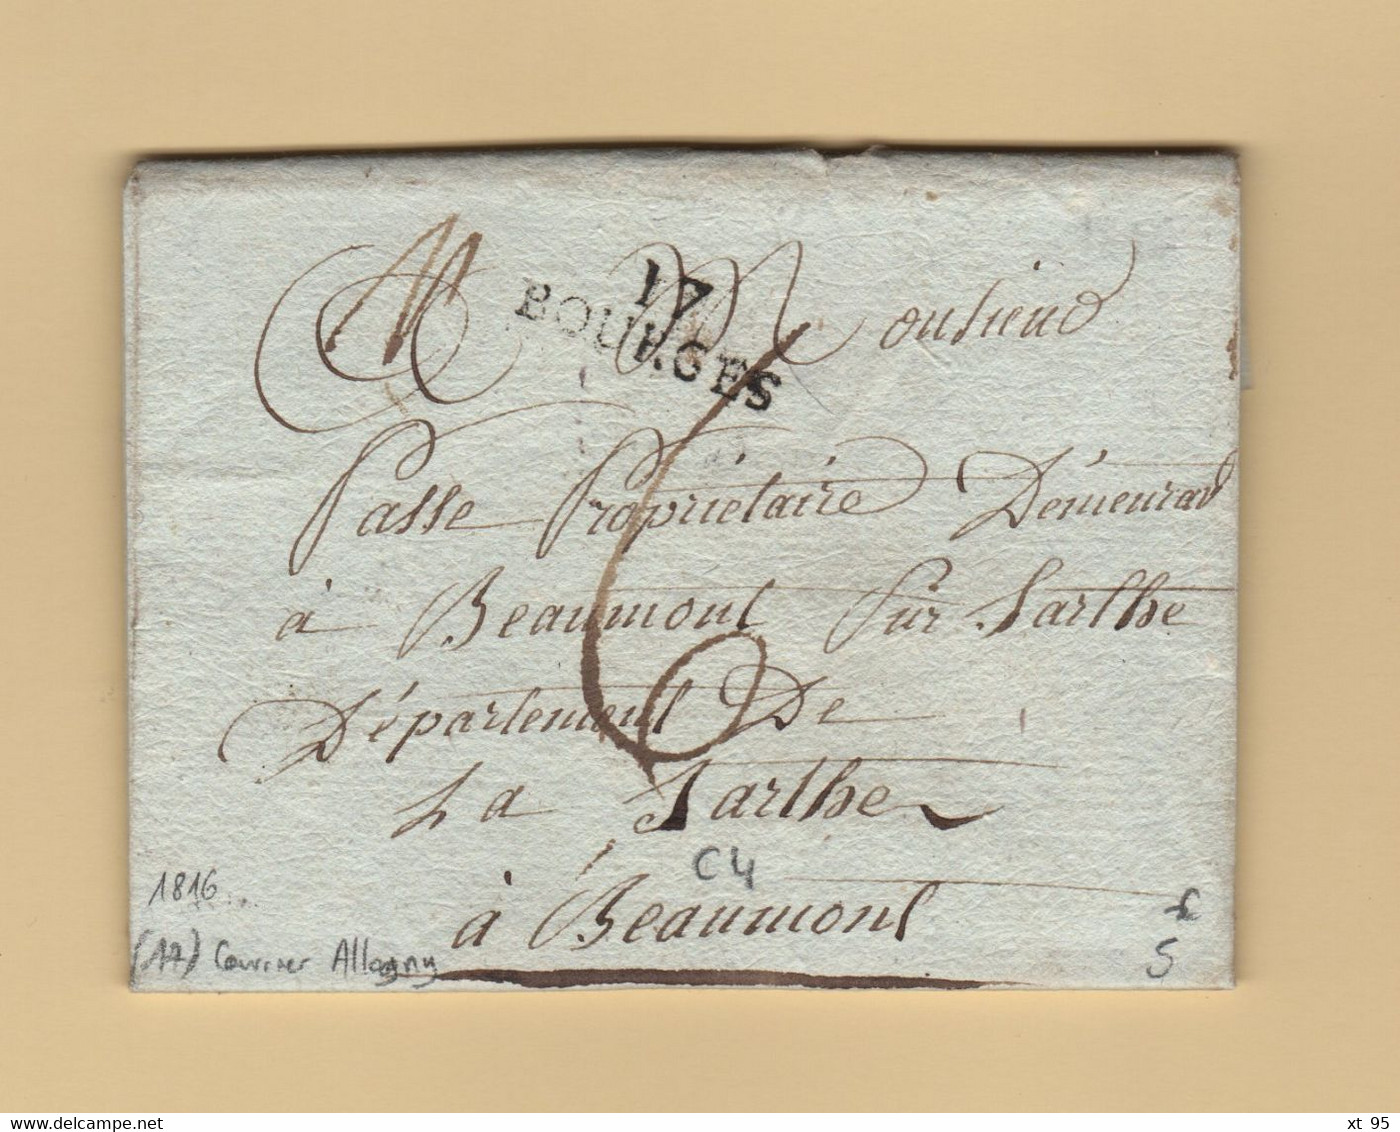 17
BOURGES
A Monsieur
Passe Propriétaire Démeurant
à Beaumont sur Sarthe
Département De
La Sarthe
à Beaumont
6
C4
1816
(17) Courrier Allogny
5
xt 95